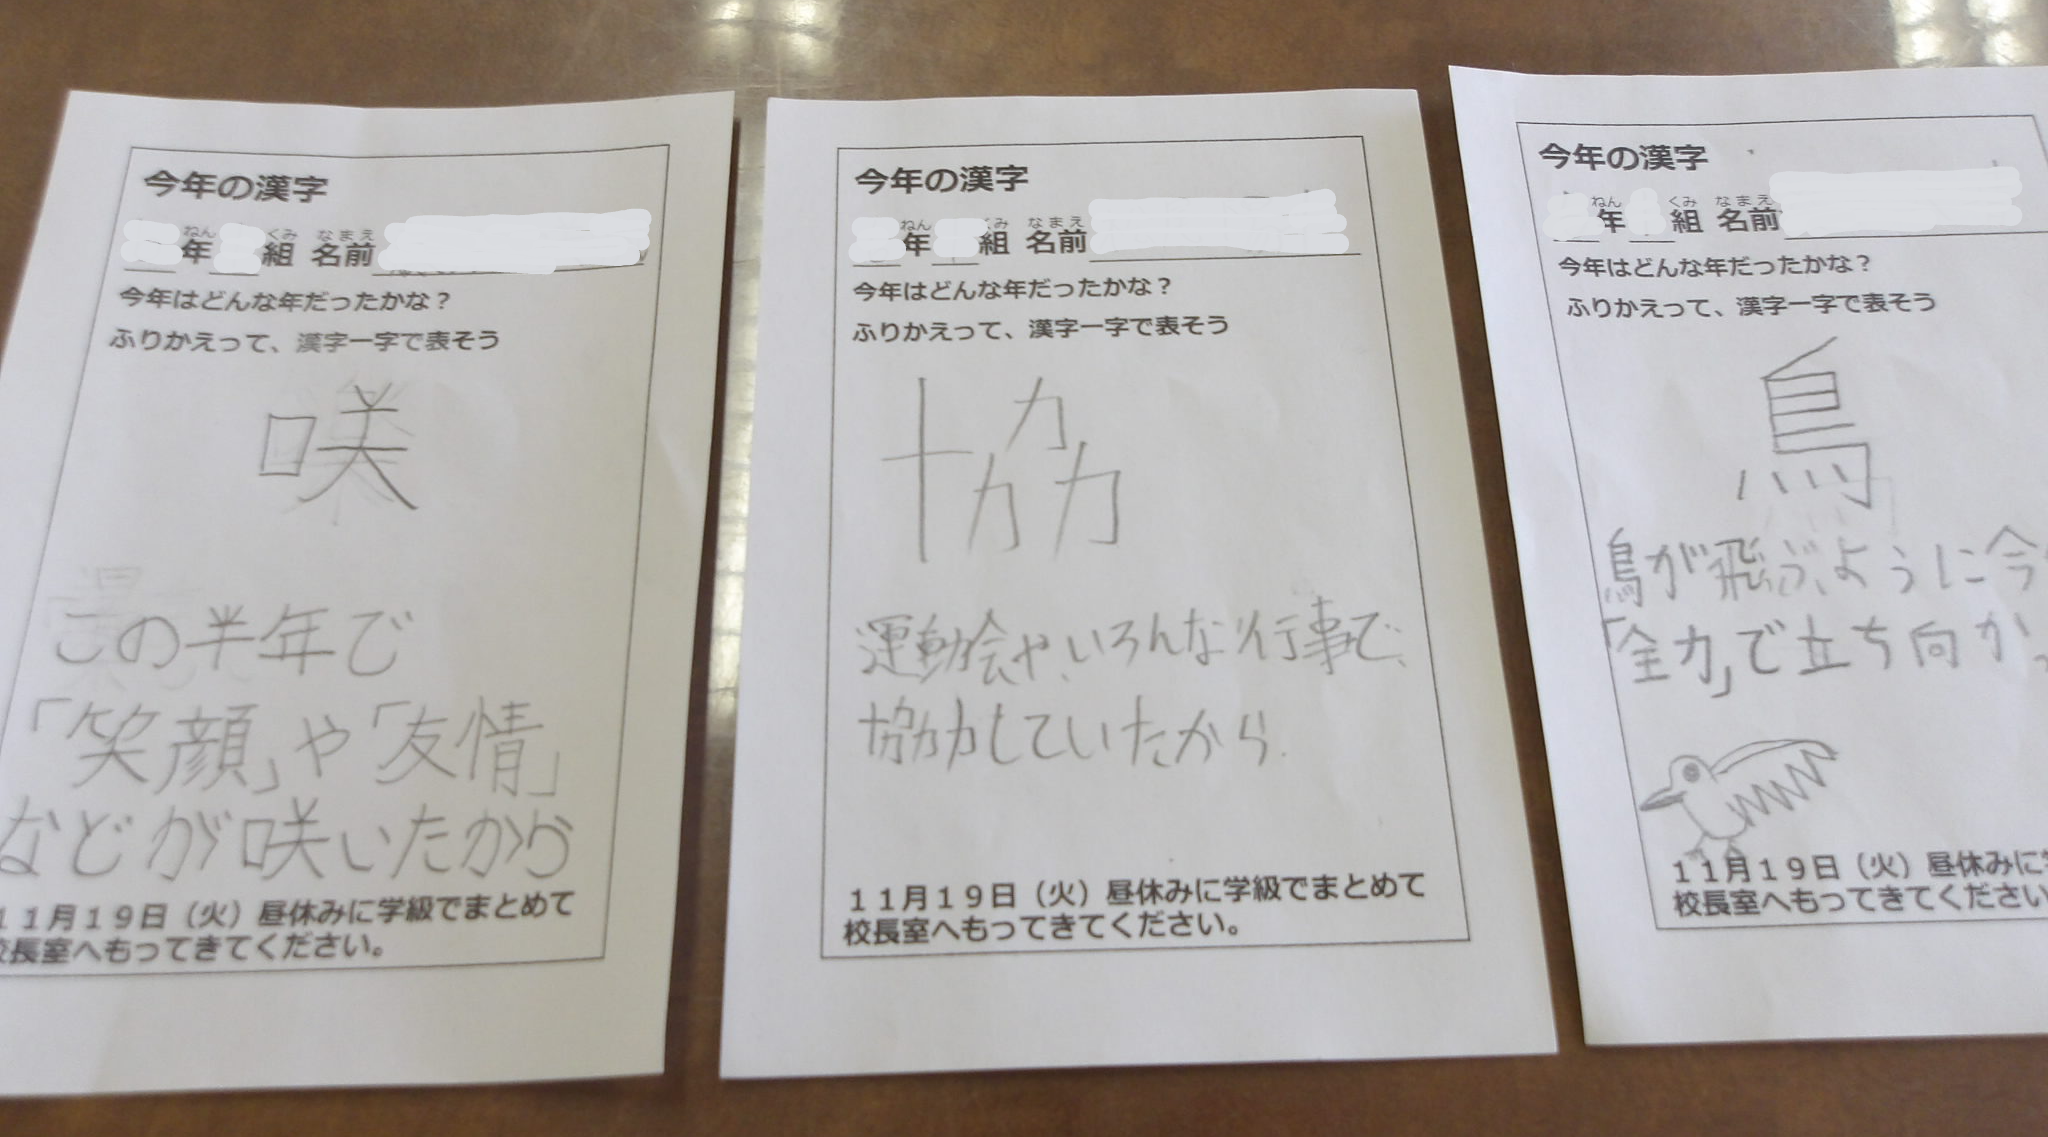 今年の漢字
ねん くみ なまえ
年 組 名前
今年はどんな年だったかな？
ふりかえって、漢字一字で表そう
咲
この半年で
「笑顔」や「友情」
などが咲いたから
11月19日（火）昼休みに学級でまとめて
校長室へもってきてください。
今年の漢字
ねん くみ なまえ
年 組 名前
今年はどんな年だったかな？
ふりかえって、漢字一字で表そう
協
運動会や、いろんな行事で、
協力していたから.
11月19日（火）昼休みに学級でまとめて
校長室へもってきてください。
今年の漢字
ねん くみ なまえ
年 組 名前
今年はどんな年だったかな？
ふりかえって、漢字一字で表そう
鳥
鳥が飛ぶように今
「全力」で立ち向かっ
11月19日（火）昼休みに
校長室へもってきてください